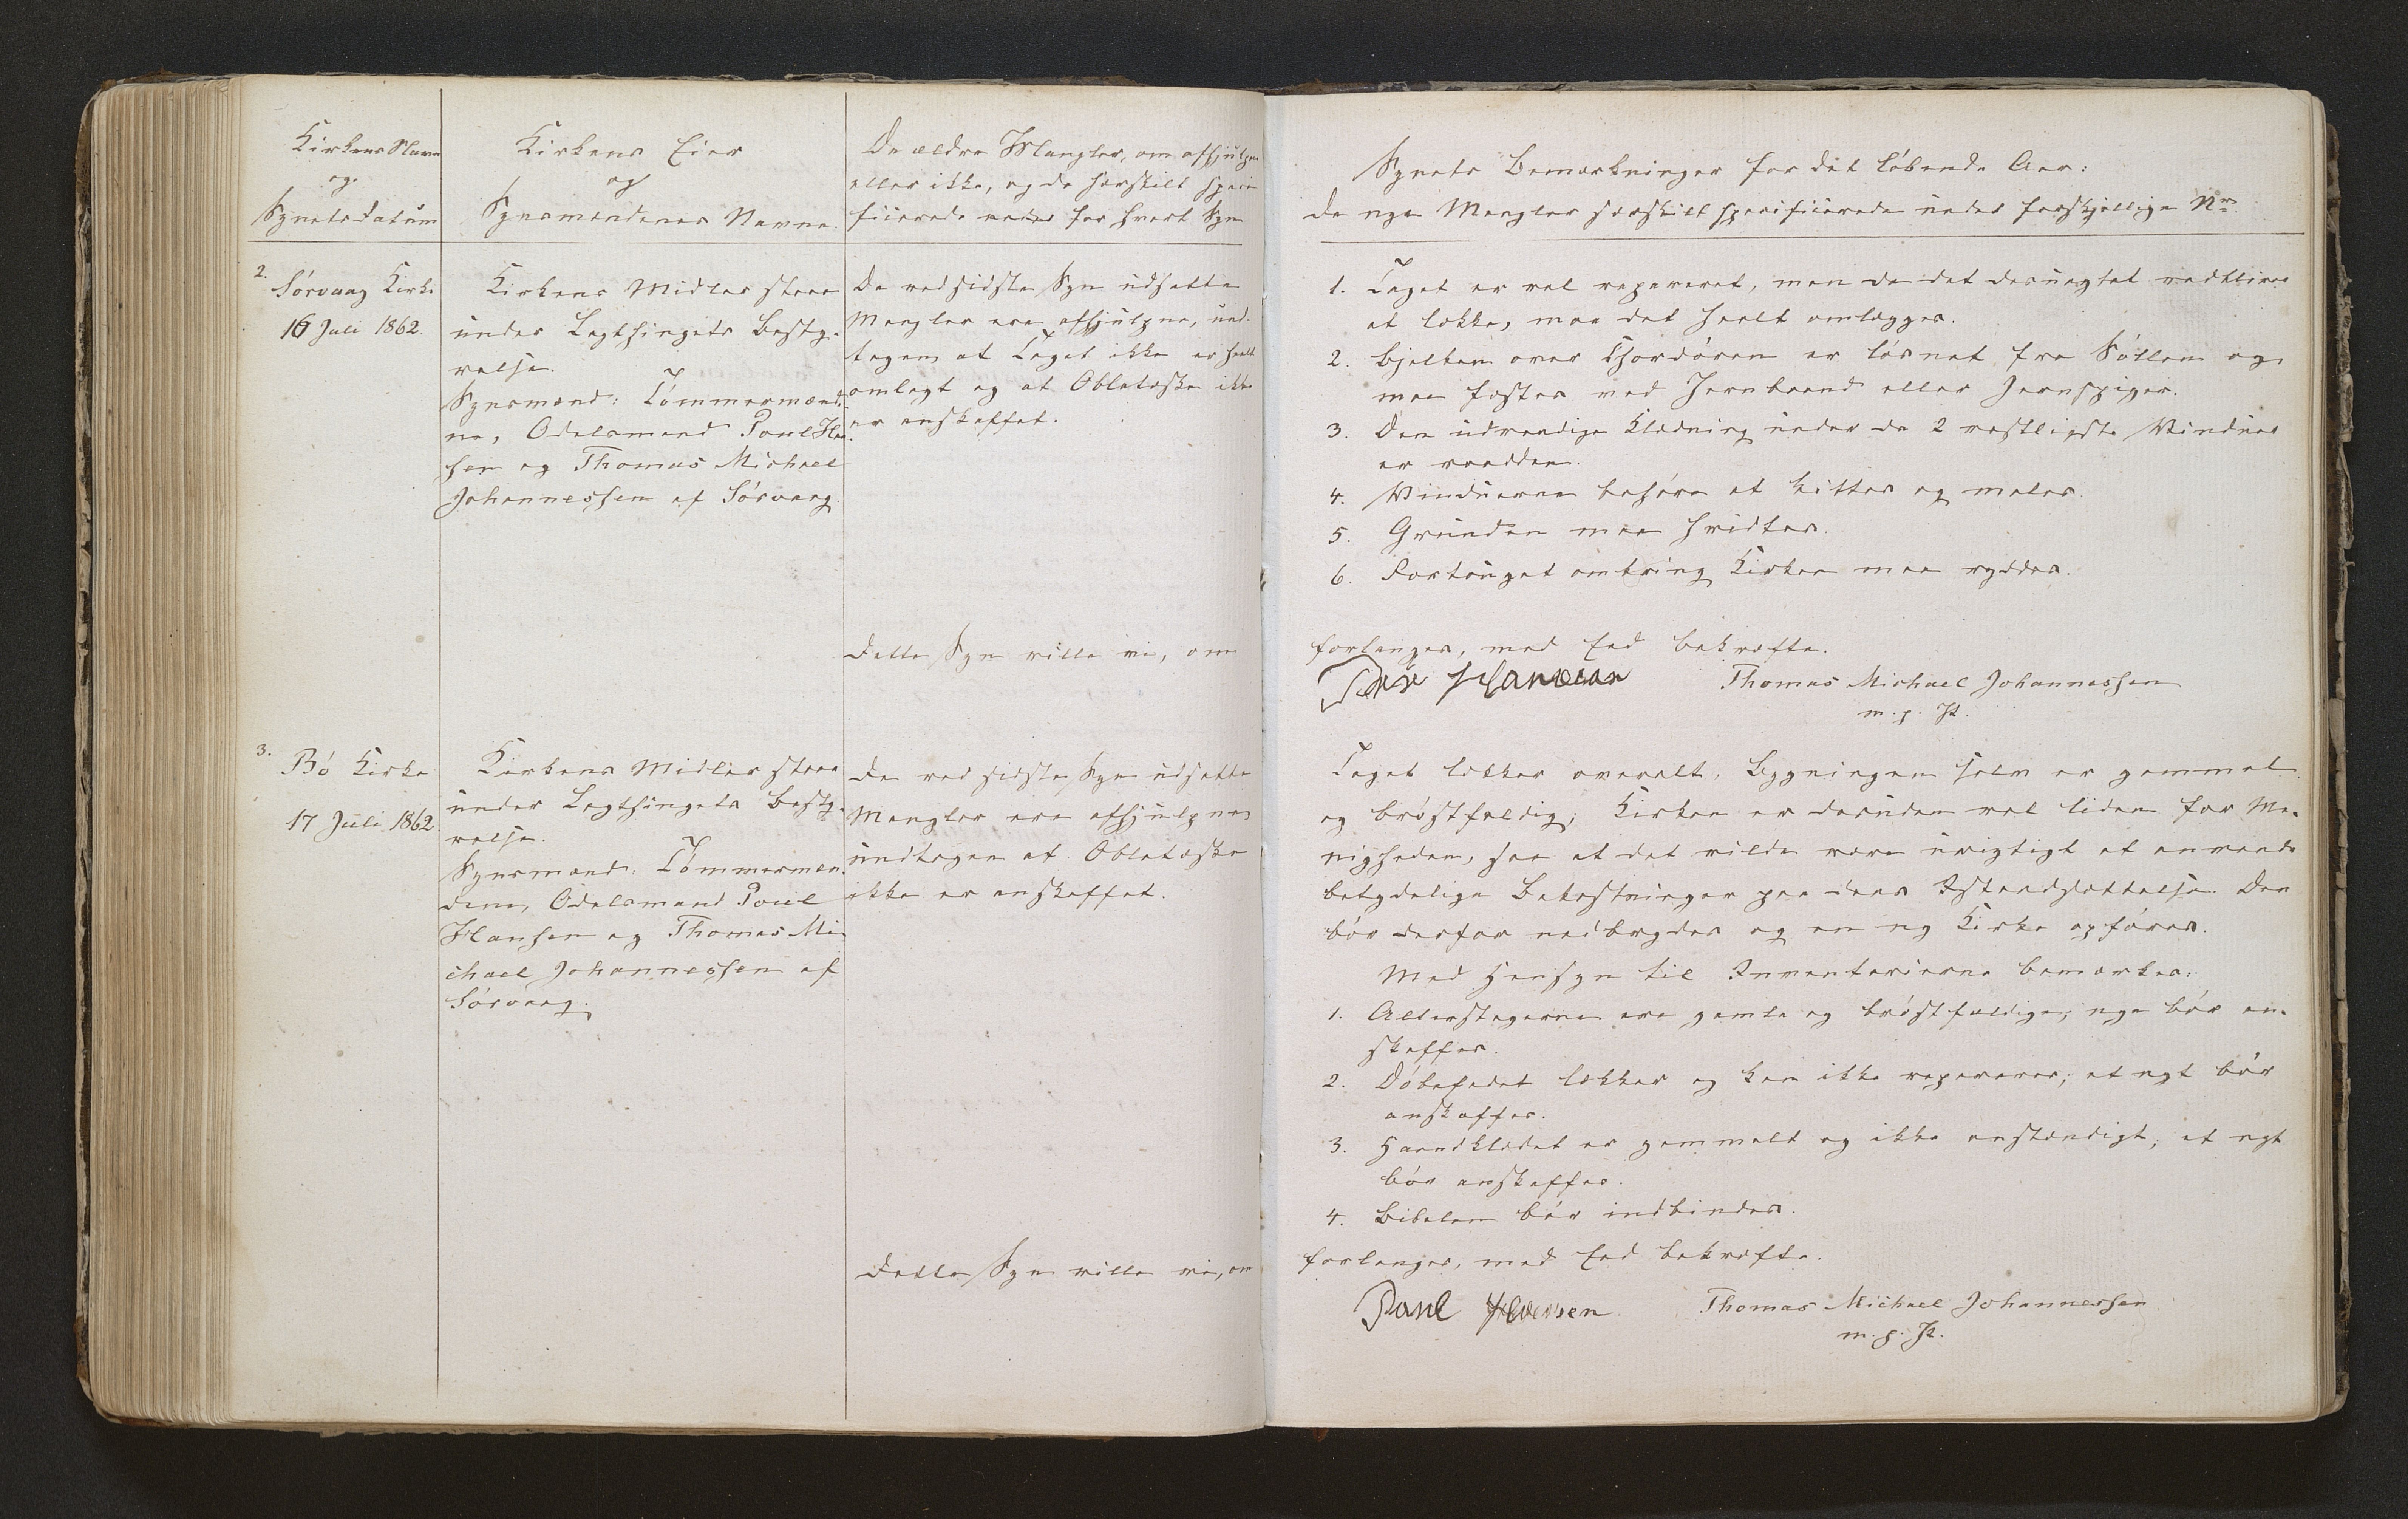 Kirkens Navn
og
Synets Datum
Kirkens Eier
og
Synsmændenes Navne.
De ældre Mangler, om afhjulpne
eller ikke, og da særskilt speci
ficerede neden for hvert Syn
2.
Sørvaag Kirke
16 Juli 1862.
Kirkens Midler staae
under Lagthingets Besty-
relse.
Synsmænd: Tømmermænde-
ne, Odelsmand Poul Han-
sen og Thomas Michael
Johannessen af Sørvaag.
De ved sidste Syn udsatte
Mangler ere afhjulpne, und-
tagen at Taget ikke er heelt
omlagt og at Oblatæske ikke
er anskaffet.
Dette Syn ville vi, om
3.
Bø Kirke
17 Juli 1862
Kirkens Midler staae
under Lagthingets Besty-
relse.
Synsmænd: Tømmermæn-
dene, Odelsmand Poul
Hansen og Thomas Mi-
chael Johannessen af
Sørvaag.
De ved sidste Syn udsatte
Mangler ere afhjulpne,
undtagen at Oblatæske
ikke er anskaffet.
Dette Syn ville vi, om
Synets Bemærkninger for det løbende Aar:
de nye Mangler særskilt specificerede under forskjellige Nr.
1. Taget er vel repareret, men da det desuagtet vedbliver
at lække, maa det heelt omlægges.
2. Bjelken over Chordøren er løsnet fra Søilen og
maa fæstes med Jernbaand eller Jernspiger.
3. Den udvendige Klædning under de 2 vestligste Vinduer
er raadden.
4. Vinduerne behøve at kittes og males.
5. Grunden maa hvidtes.
6. Fortouget omkring Kirken maa ryddes.
forlanges, med Eed bekræfte.
Poul Hansen
Thomas Michael Johannessen
m. p. P.
Taget lækker overalt. Bygningen selv er gammel
og brøstfældig; Kirken er desuden vel liden for Me-
nigheden, saa at det vilde være urigtigt at anvende
betydelige Bekostninger paa dens Istandsættelse. Den
bør derfor nedbrydes og en ny Kirke opføres.
Med Hensyn til Inventarierne bemærkes:
1. Alterstagerne ere gamle og brøstfældige; nye bør an-
skaffes.
2. Døbefadet lækker og kan ikke repareres; et nyt bør
anskaffes.
3. Haandklædet er gammelt og ikke anstændigt; et nyt
bør anskaffes.
4. Bibelen bør indbindes.
forlanges, med Eed bekræfte.
Poul Hansen
Thomas Michael Johannessen
m. p. P.